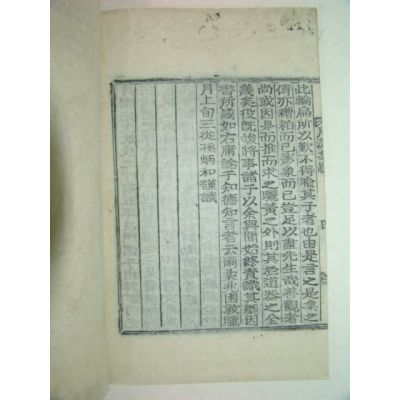 此輪扁所以歎不得喩其子者也由是言之是集之
傳亦糟粕而已影象而已豈足以盡先生哉善觀者
尙或因是而推而求之驪黃之外則其於道器之全
幾矣役旣竣將事諸子以余與聞始終責識其
書所感如右庸諗于知德知言者云爾柔兆困敦臘
月上旬三從孫炳和謹識